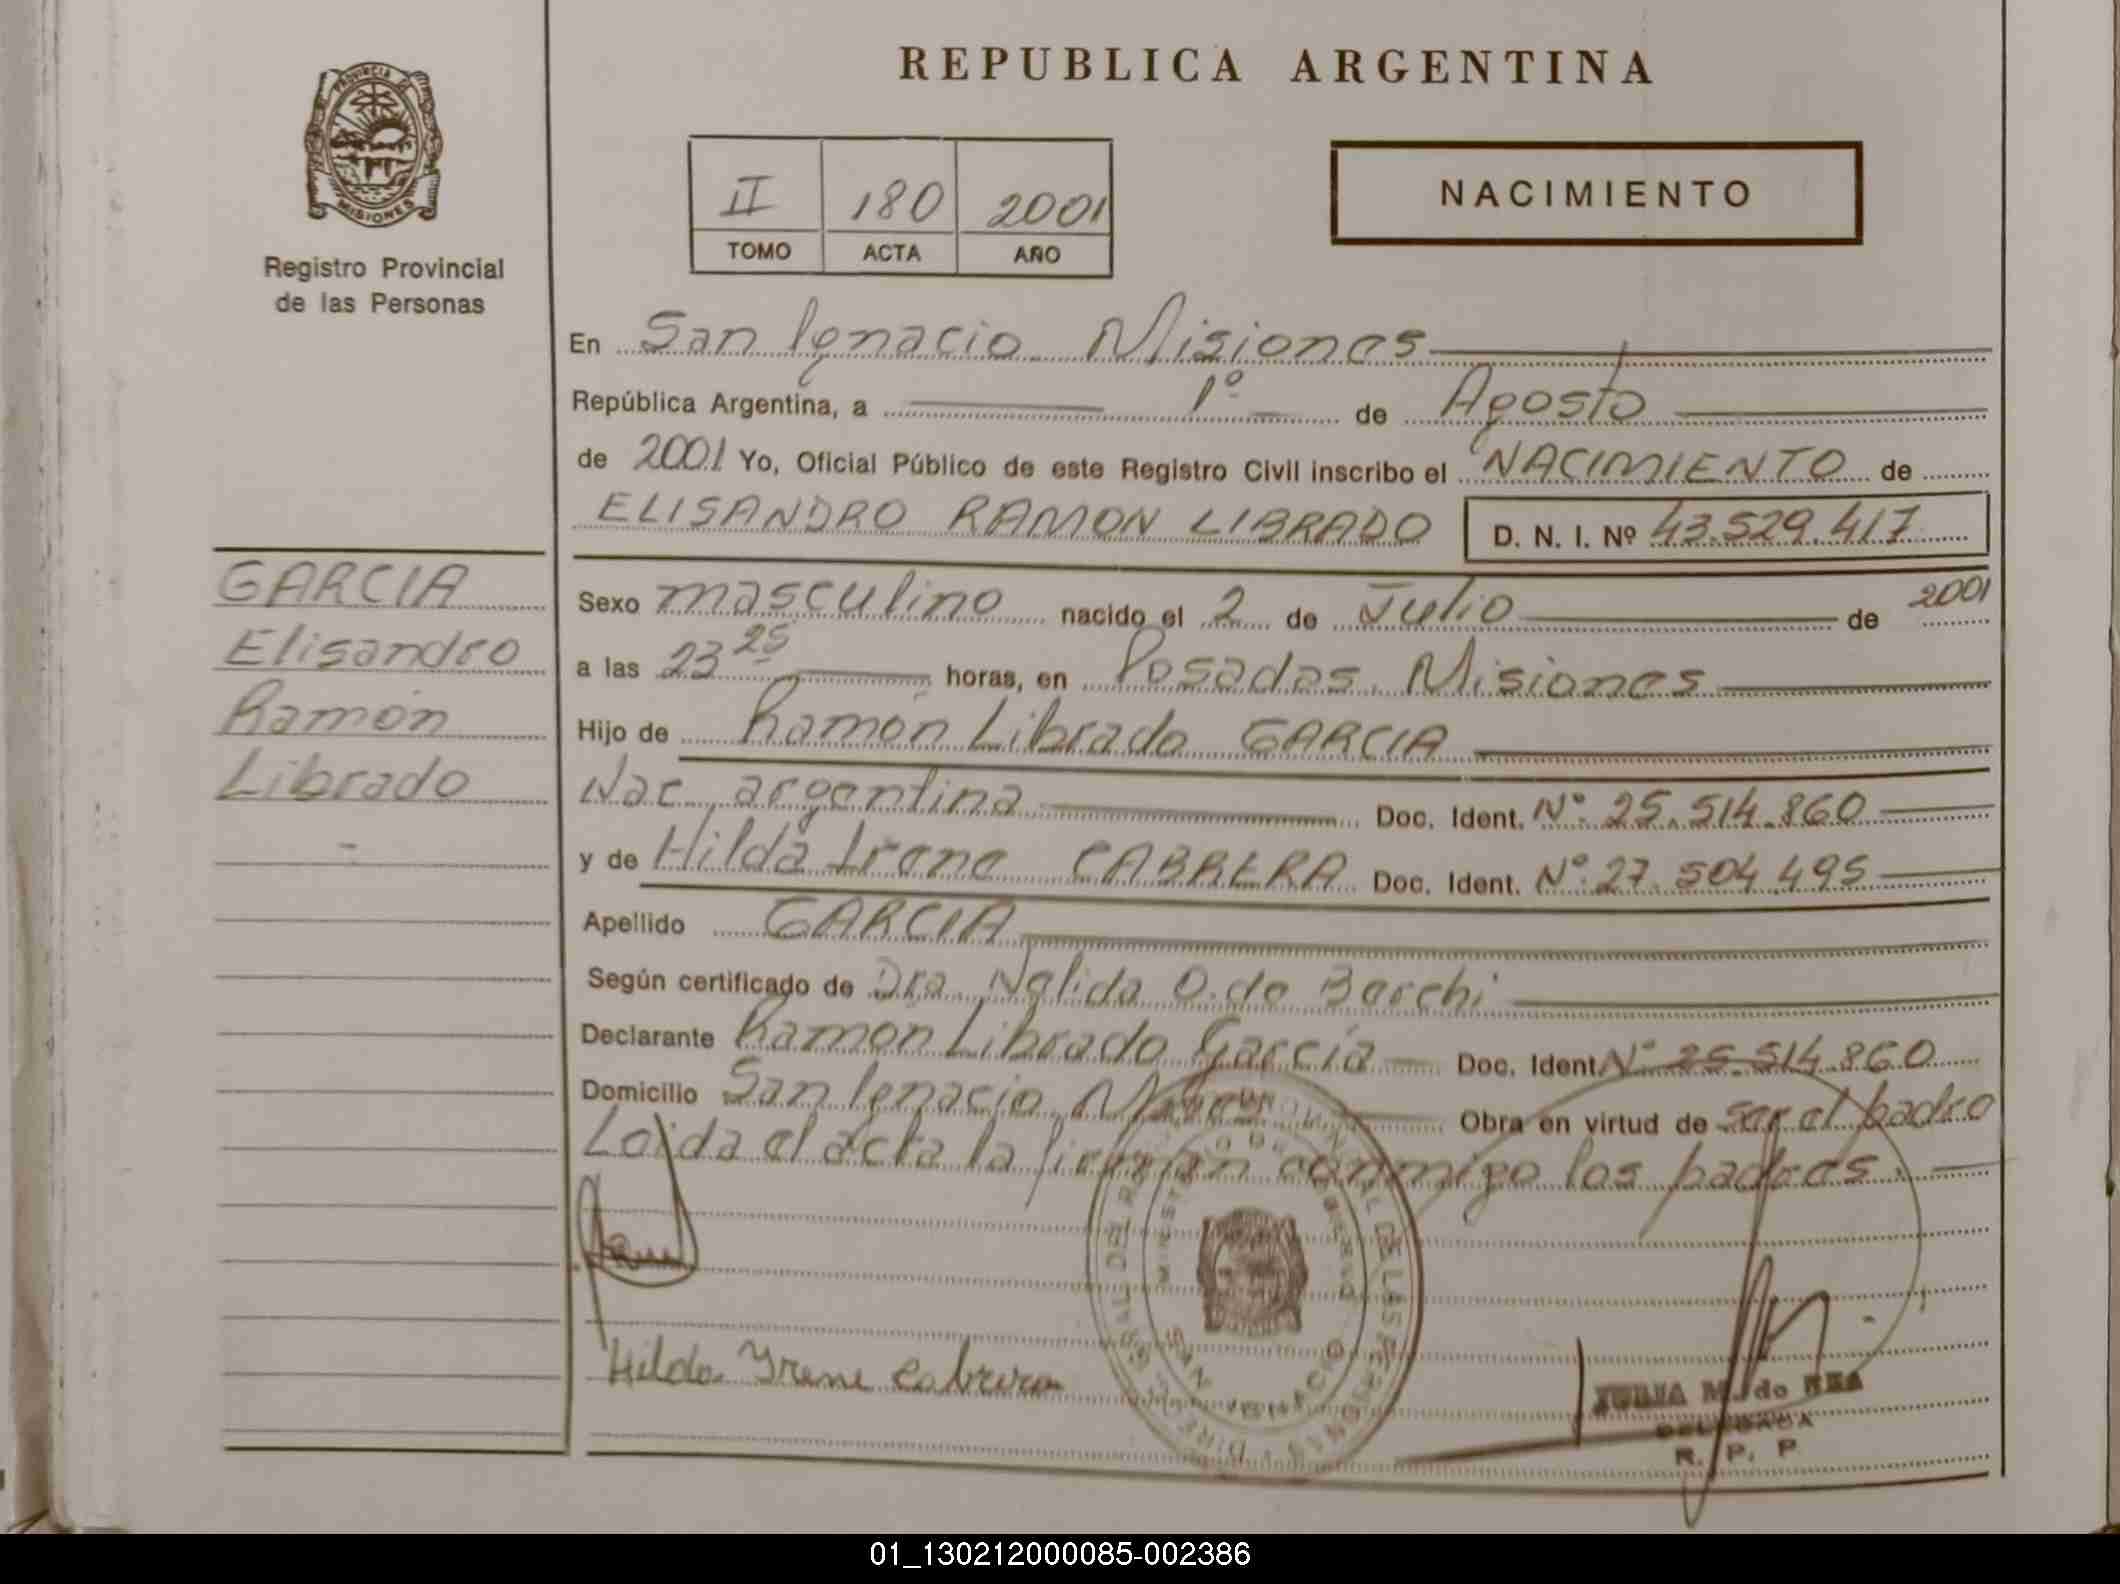 REPUBLICA ARGENTINA
PROVINCIA DE
MISIONES
Registro Provincial
de las Personas
II 180 2001
TOMO ACTA AÑO
NACIMIENTO
En San Ignacio Misiones
República Argentina, a 1º de Agosto
de 2001 Yo, Oficial Público de este Registro Civil inscribo el NACIMIENTO de
ELISANDRO RAMON LIBRADO D. N. I. Nº 43.529.417
GARCIA
Elisandro
Ramón
Librado
Sexo masculino nacido el 2 de Julio de 2001
a las 23 25 horas, en Posadas. Misiones
Hijo de Ramón Librado GARCIA
Nac. argentina Doc. Ident. Nº: 25.514.860
y de Hilda Irene CABRERA Doc. Ident. Nº: 27.504.495
Apellido GARCIA
Según certificado de Dra. Nelida O. de
Declarante Ramón Librado García Doc. Ident. Nº 25.514.860
Domicilio San Ignacio Mnes. Obra en virtud de ser el padre
Leida el acta la firman conmigo los padres.
Hilda Irene Cabrera
SAN IGNACIO
JULIA M. de REA
DELEGADA
R. P. P
01_130212000085-002386